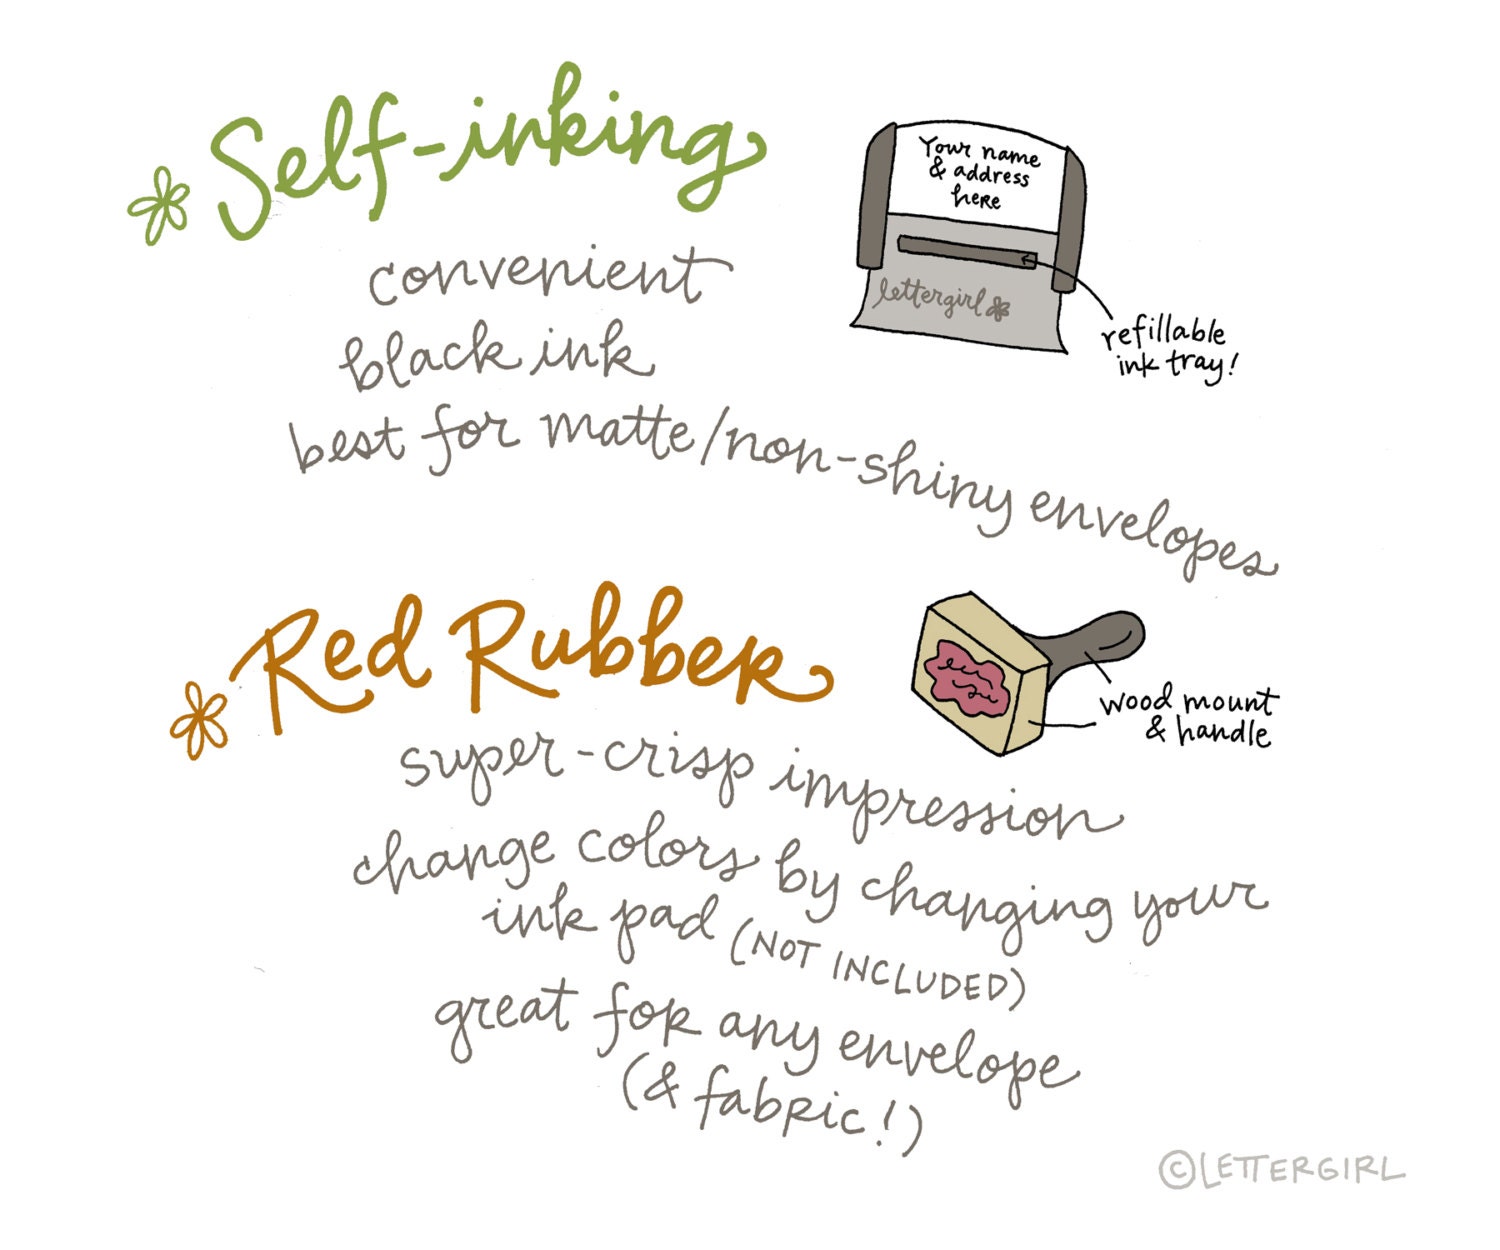 Self-inking
Your name
& address
here
lettergirl
refillable
ink tray!
convenient
black ink
best for matte/non-shiny envelopes
Red Rubber
wood mount
& handle
super-crisp impression
change colors by changing your
ink pad (NOT INCLUDED)
great for any envelope
(& fabric!)
©LETTERGIRL